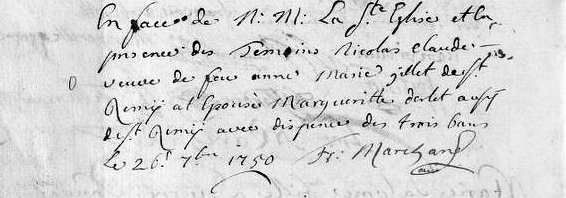 En face de N: M: La Ste Eglise et la
presence des Temoins Nicolas Claude
veuve de feu anne Marie gillet de st
Remij at Epousé Margueritte aussij
de st Remij avec dispence des trois bans
le 26e 7bre 1750 Fr: Marchand